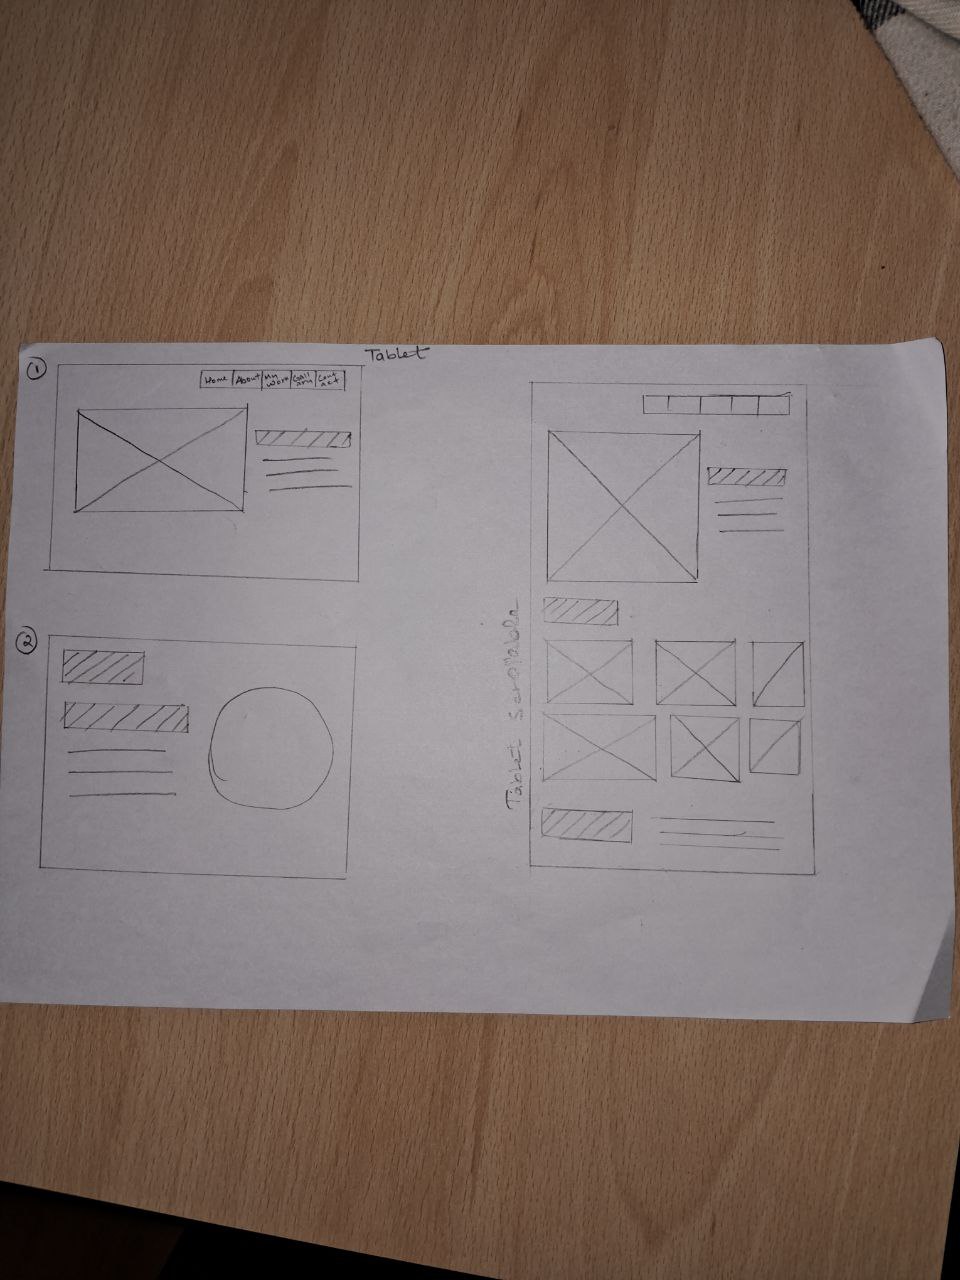 Tablet
1
Home About My Work Gallary Contact
2
Tablet Scrollable